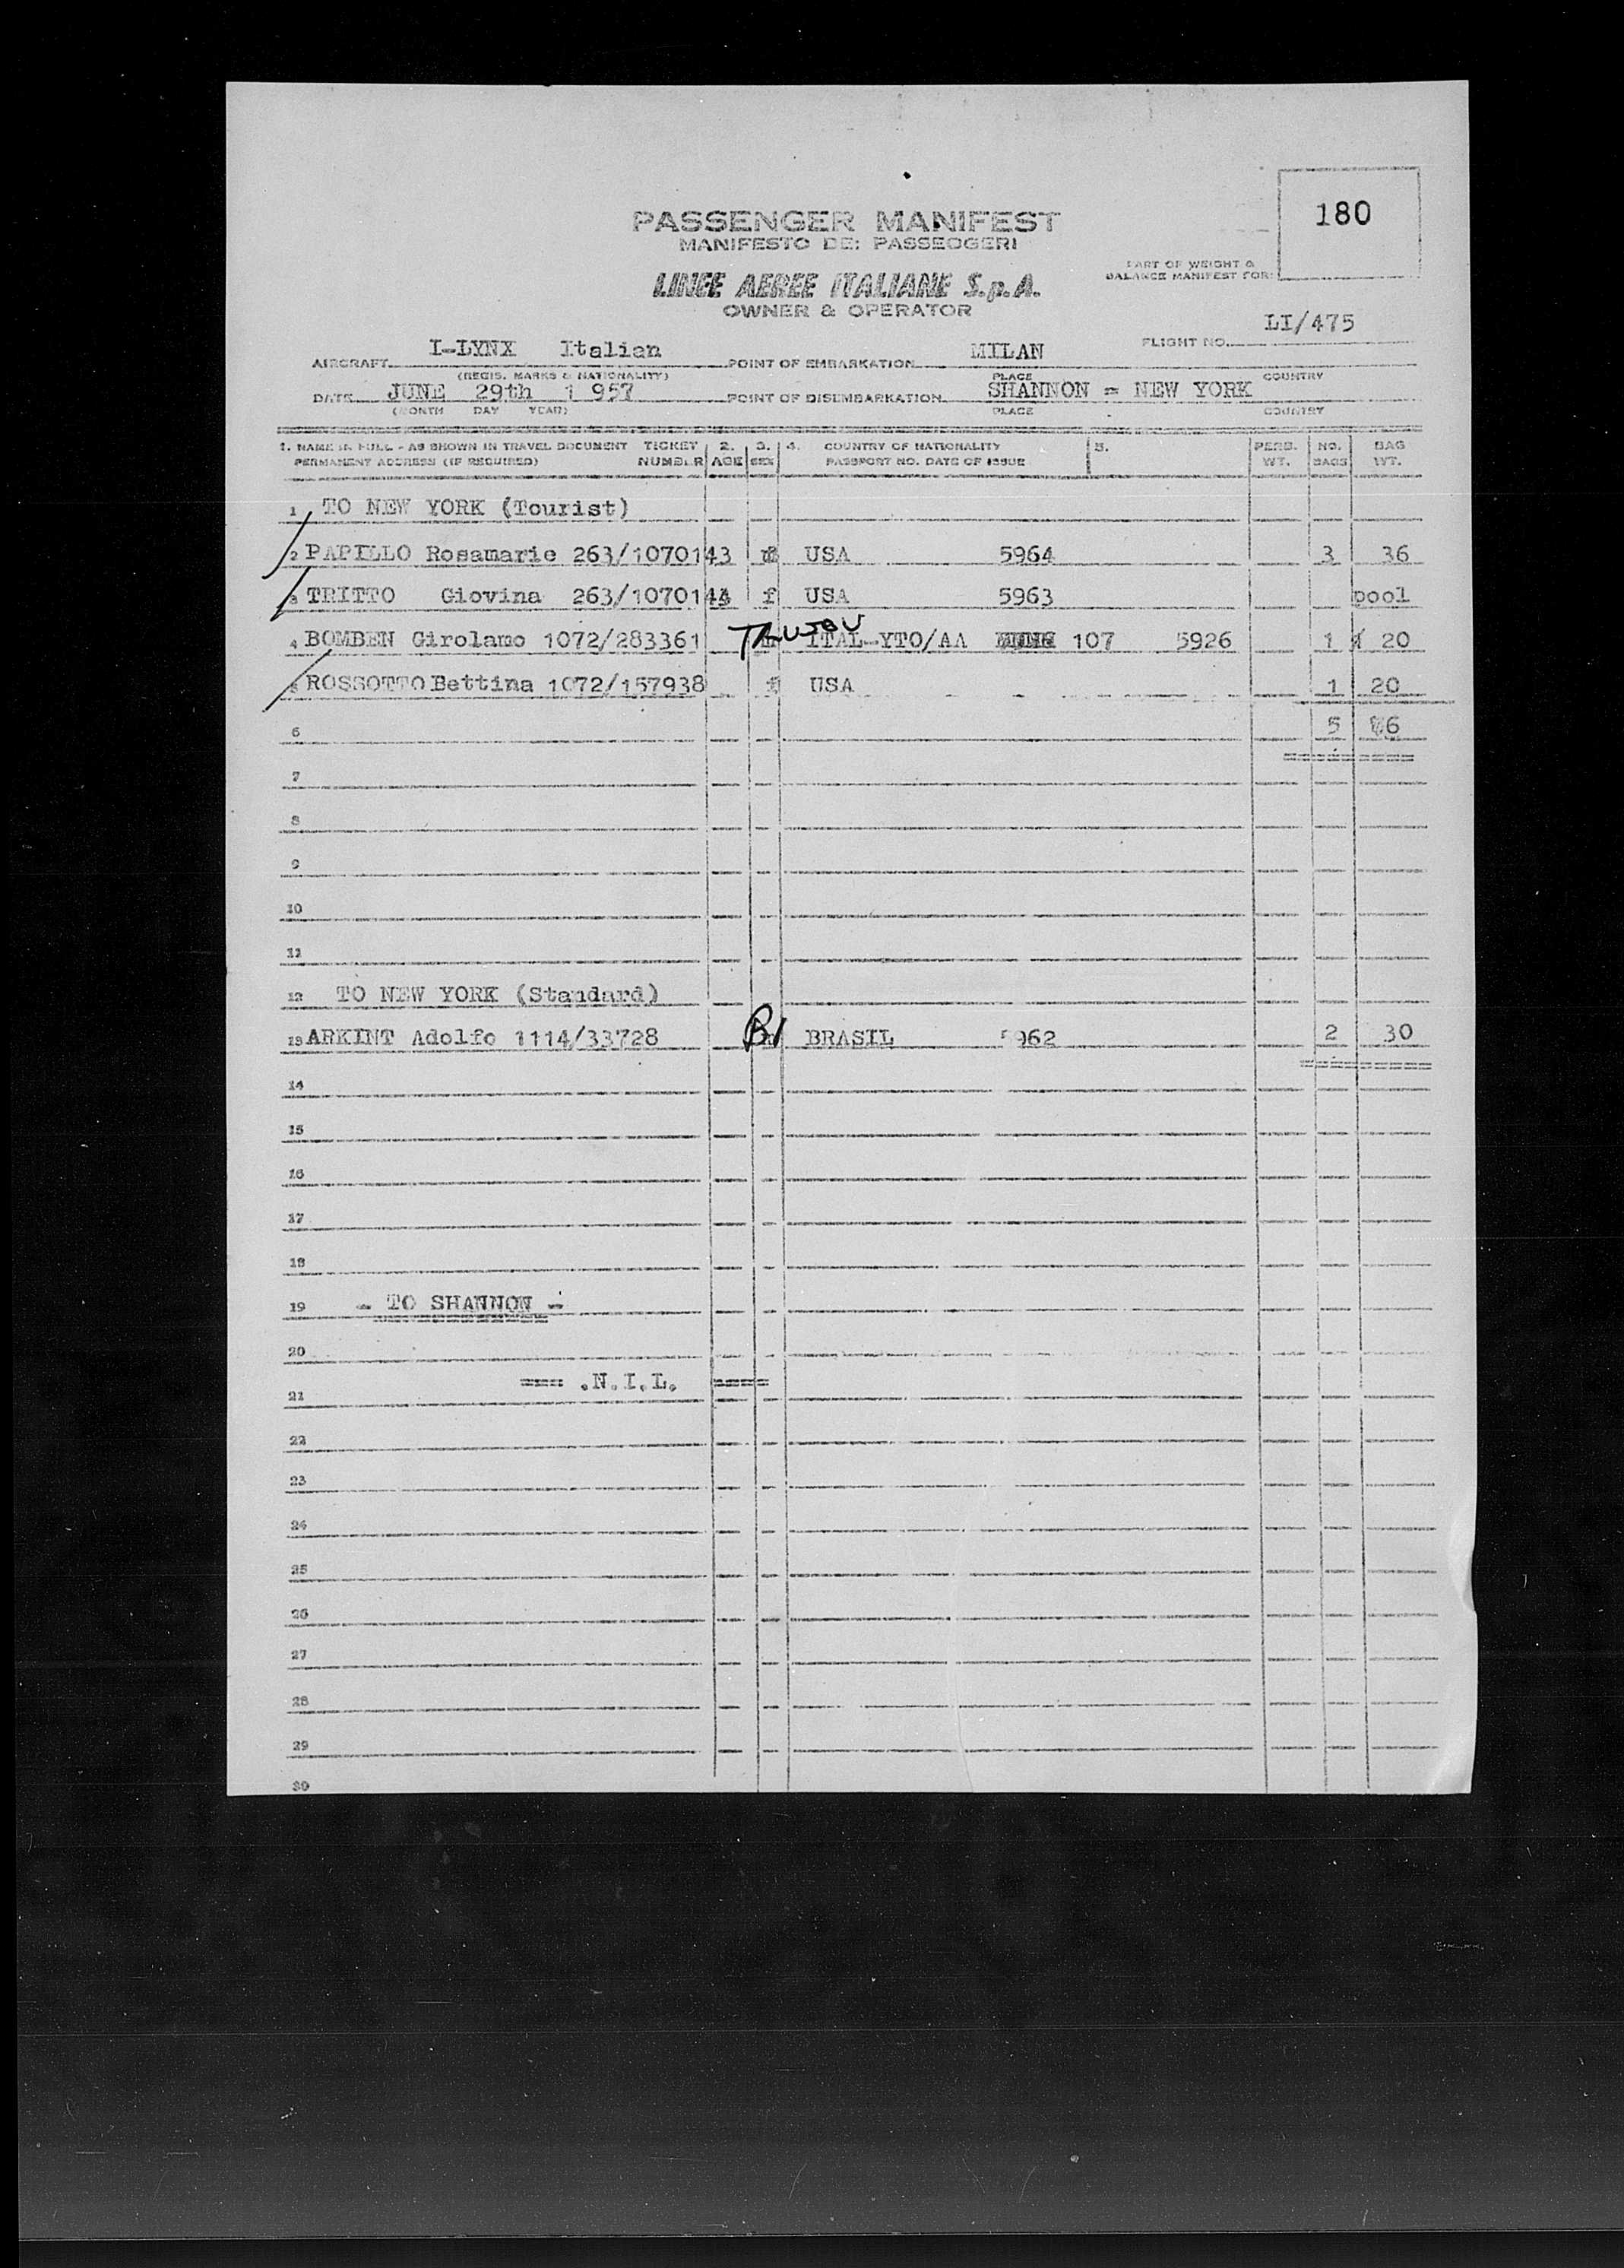 180
PASSENGER MANIFEST
MANIFESTO DEI PASSEGGERI
PART OF WEIGHT &
BALANCE MANIFEST FOR:
LINEE AEREE ITALIANE S.p.A.
OWNER & OPERATOR
LI/475
FLIGHT NO.
AIRCRAFT I-LYNX Italian POINT OF EMBARKATION MILAN
(REGIS. MARKS & NATIONALITY) PLACE COUNTRY
DATE JUNE 29th 1 957 POINT OF DISEMBARKATION SHANNON = NEW YORK
(MONTH DAY YEAR) PLACE COUNTRY
1. NAME IN FULL - AS SHOWN IN TRAVEL DOCUMENT TICKET 2. 3. 4. COUNTRY OF NATIONALITY 5. PERS. NO. BAG
PERMANENT ADDRESS (IF REQUIRED) NUMBER AGE SEX PASSPORT NO. DATE OF ISSUE WT. BAGS WT.
1 TO NEW YORK (Tourist)
2 PAPILLO Rosamarie 263/1070143 USA 5964 3 36
3 TRITTO Giovina 263/1070144 f USA 5963 pool
4 BOMBEN Girolamo 1072/283361 ITAL-YTO/AA 107 5926 1 20
5 ROSSOTTO Bettina 1072/157938 f USA 1 20
6 5 76
7
8
9
10
11
12 TO NEW YORK (Standard)
13 ARKINT Adolfo 1114/33728 BRASIL 5962 2 30
14
15
16
17
18
19 - TO SHANNON -
20
21 === .N.I.L. ====
22
23
24
25
26
27
28
29
30